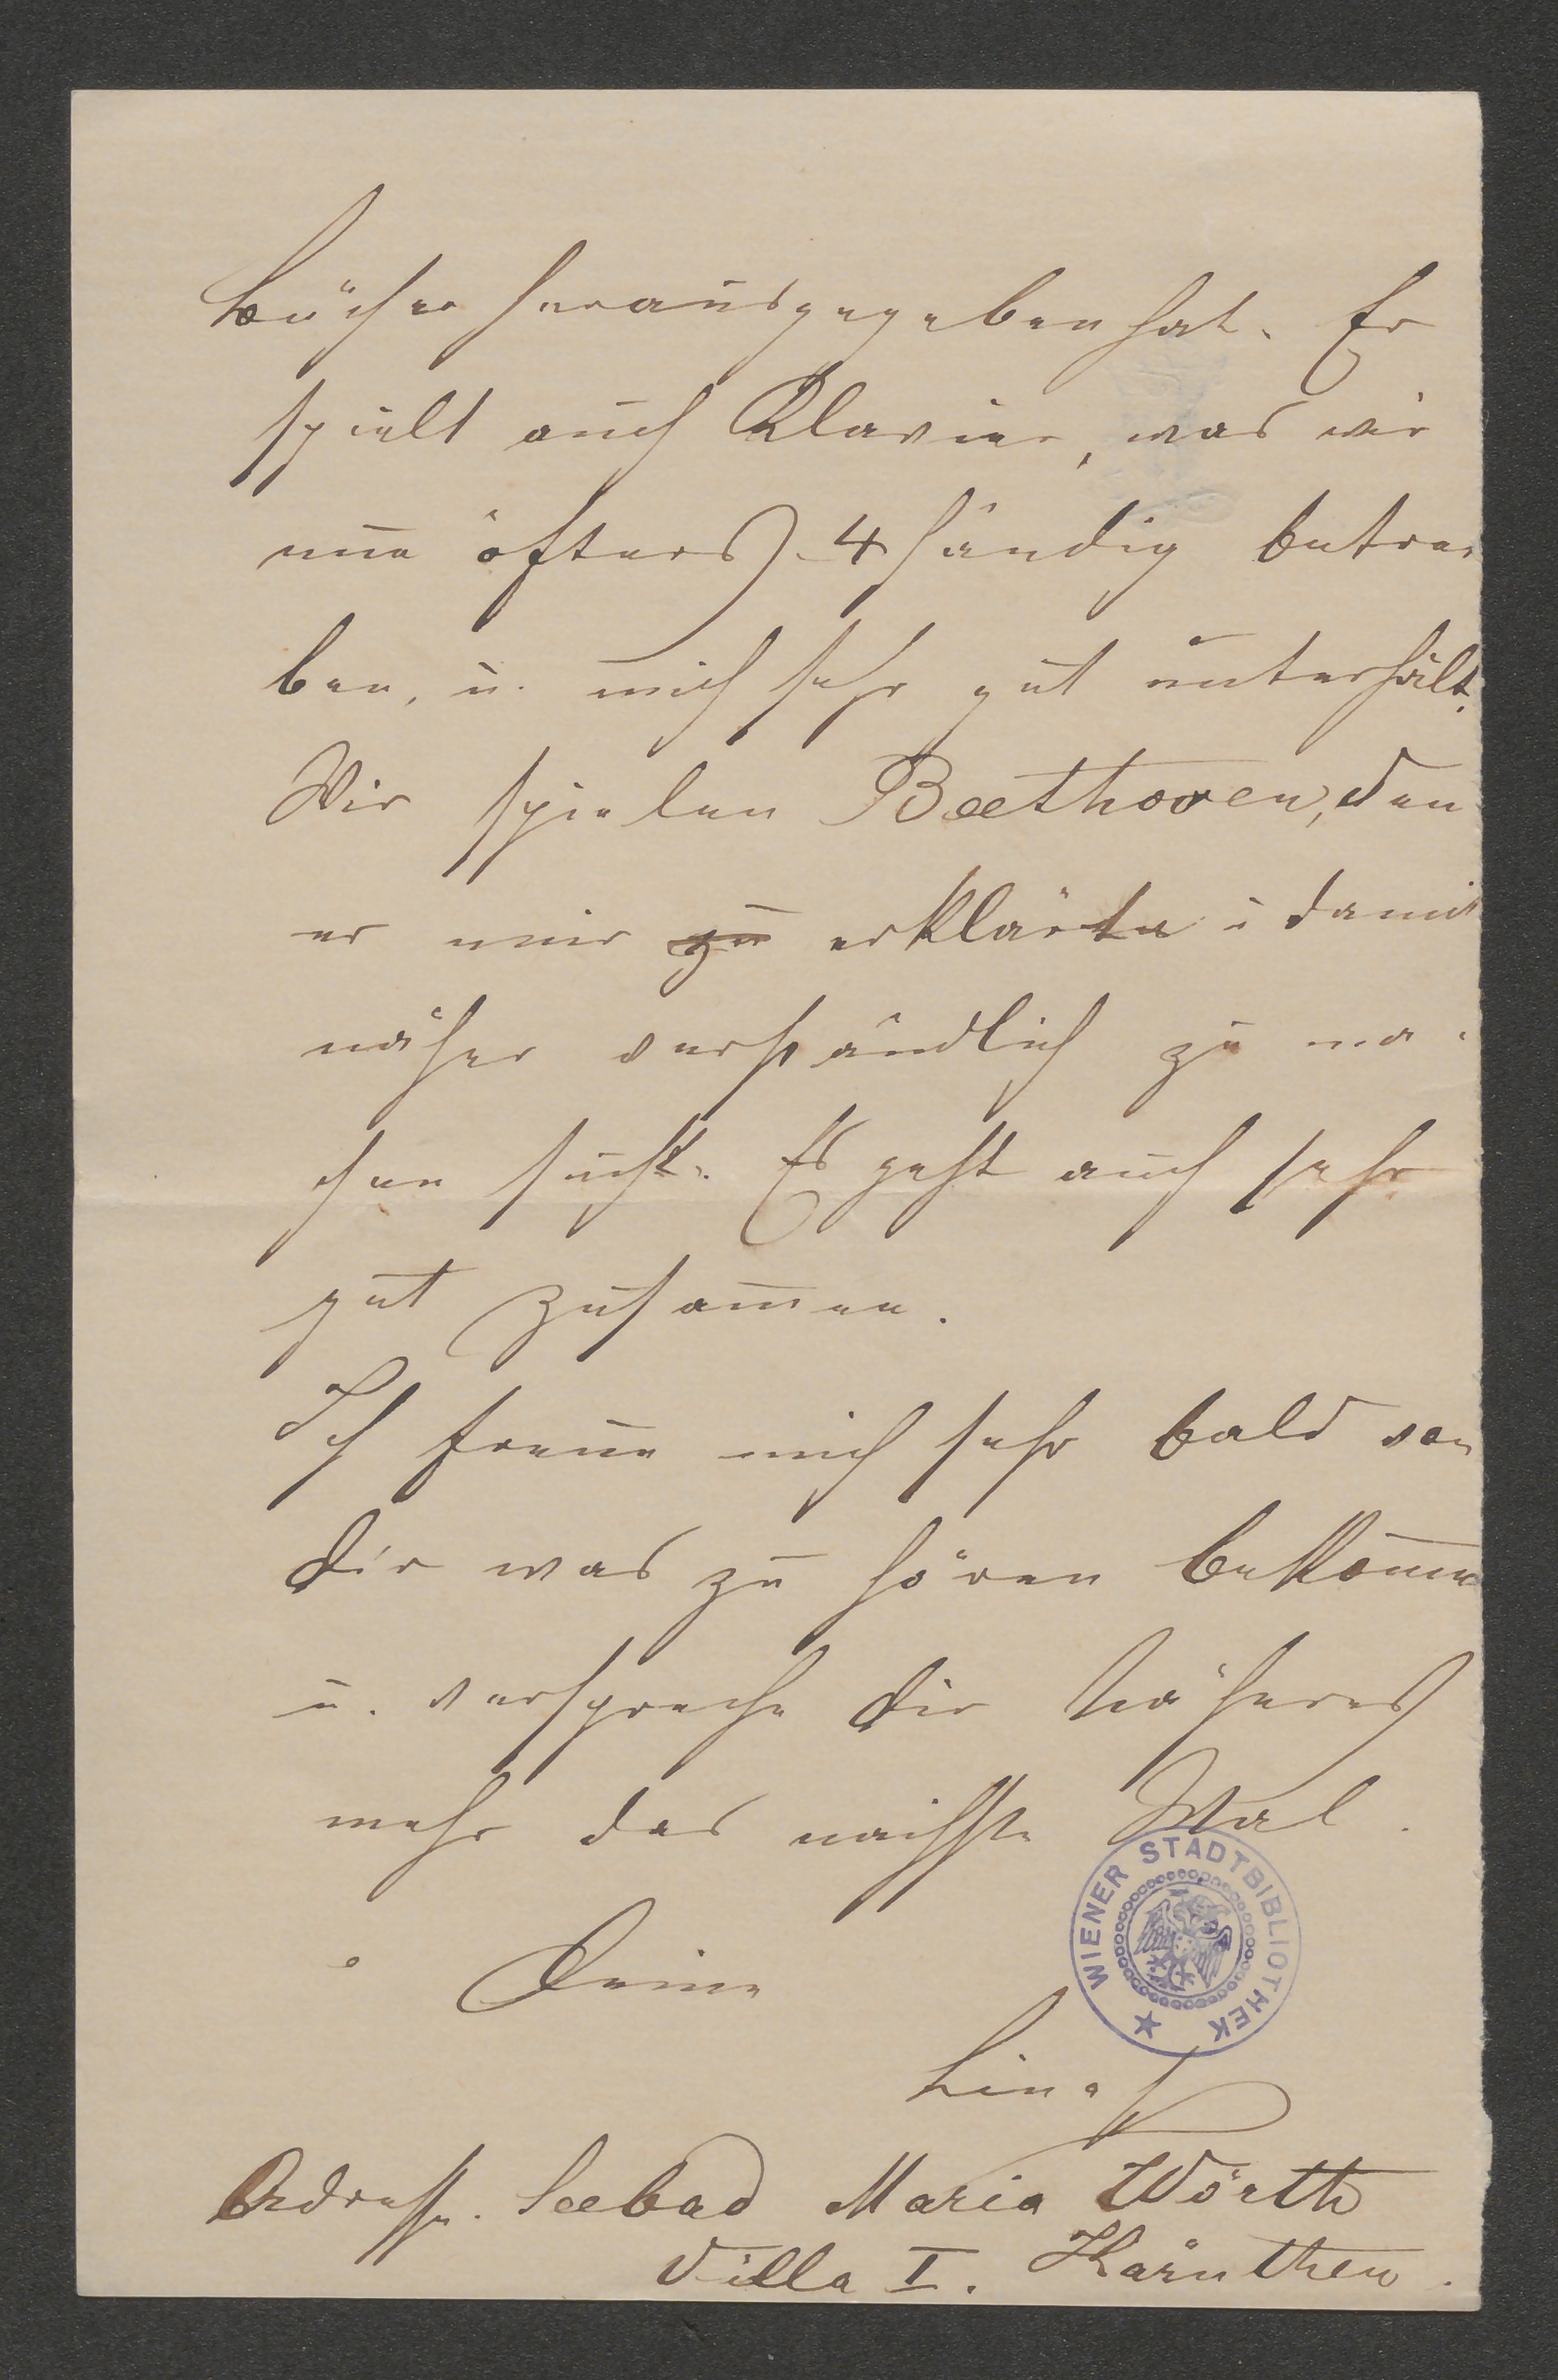 Bücher herausgegeben hat. Er
spielt auch Klavier, was wir
nun öfters 4 händig betrei
ben, u. mich sehr gut unterhält.
Wir spielen Beethoven, den
er mir zu erklärte u damit
näher verständlich zu ma-
chen sucht. Es geht auch sehr
gut zusammen.
Ich freue mich sehr bald von
Dir was zu hören bekommen
u. verspreche Dir Näheres
mehr das nächste Mal.
Deine
Lina
WIENER STADTBIBLIOTHEK
Adresse. Seebad Maria Wörth
Villa I. Kärnthen.